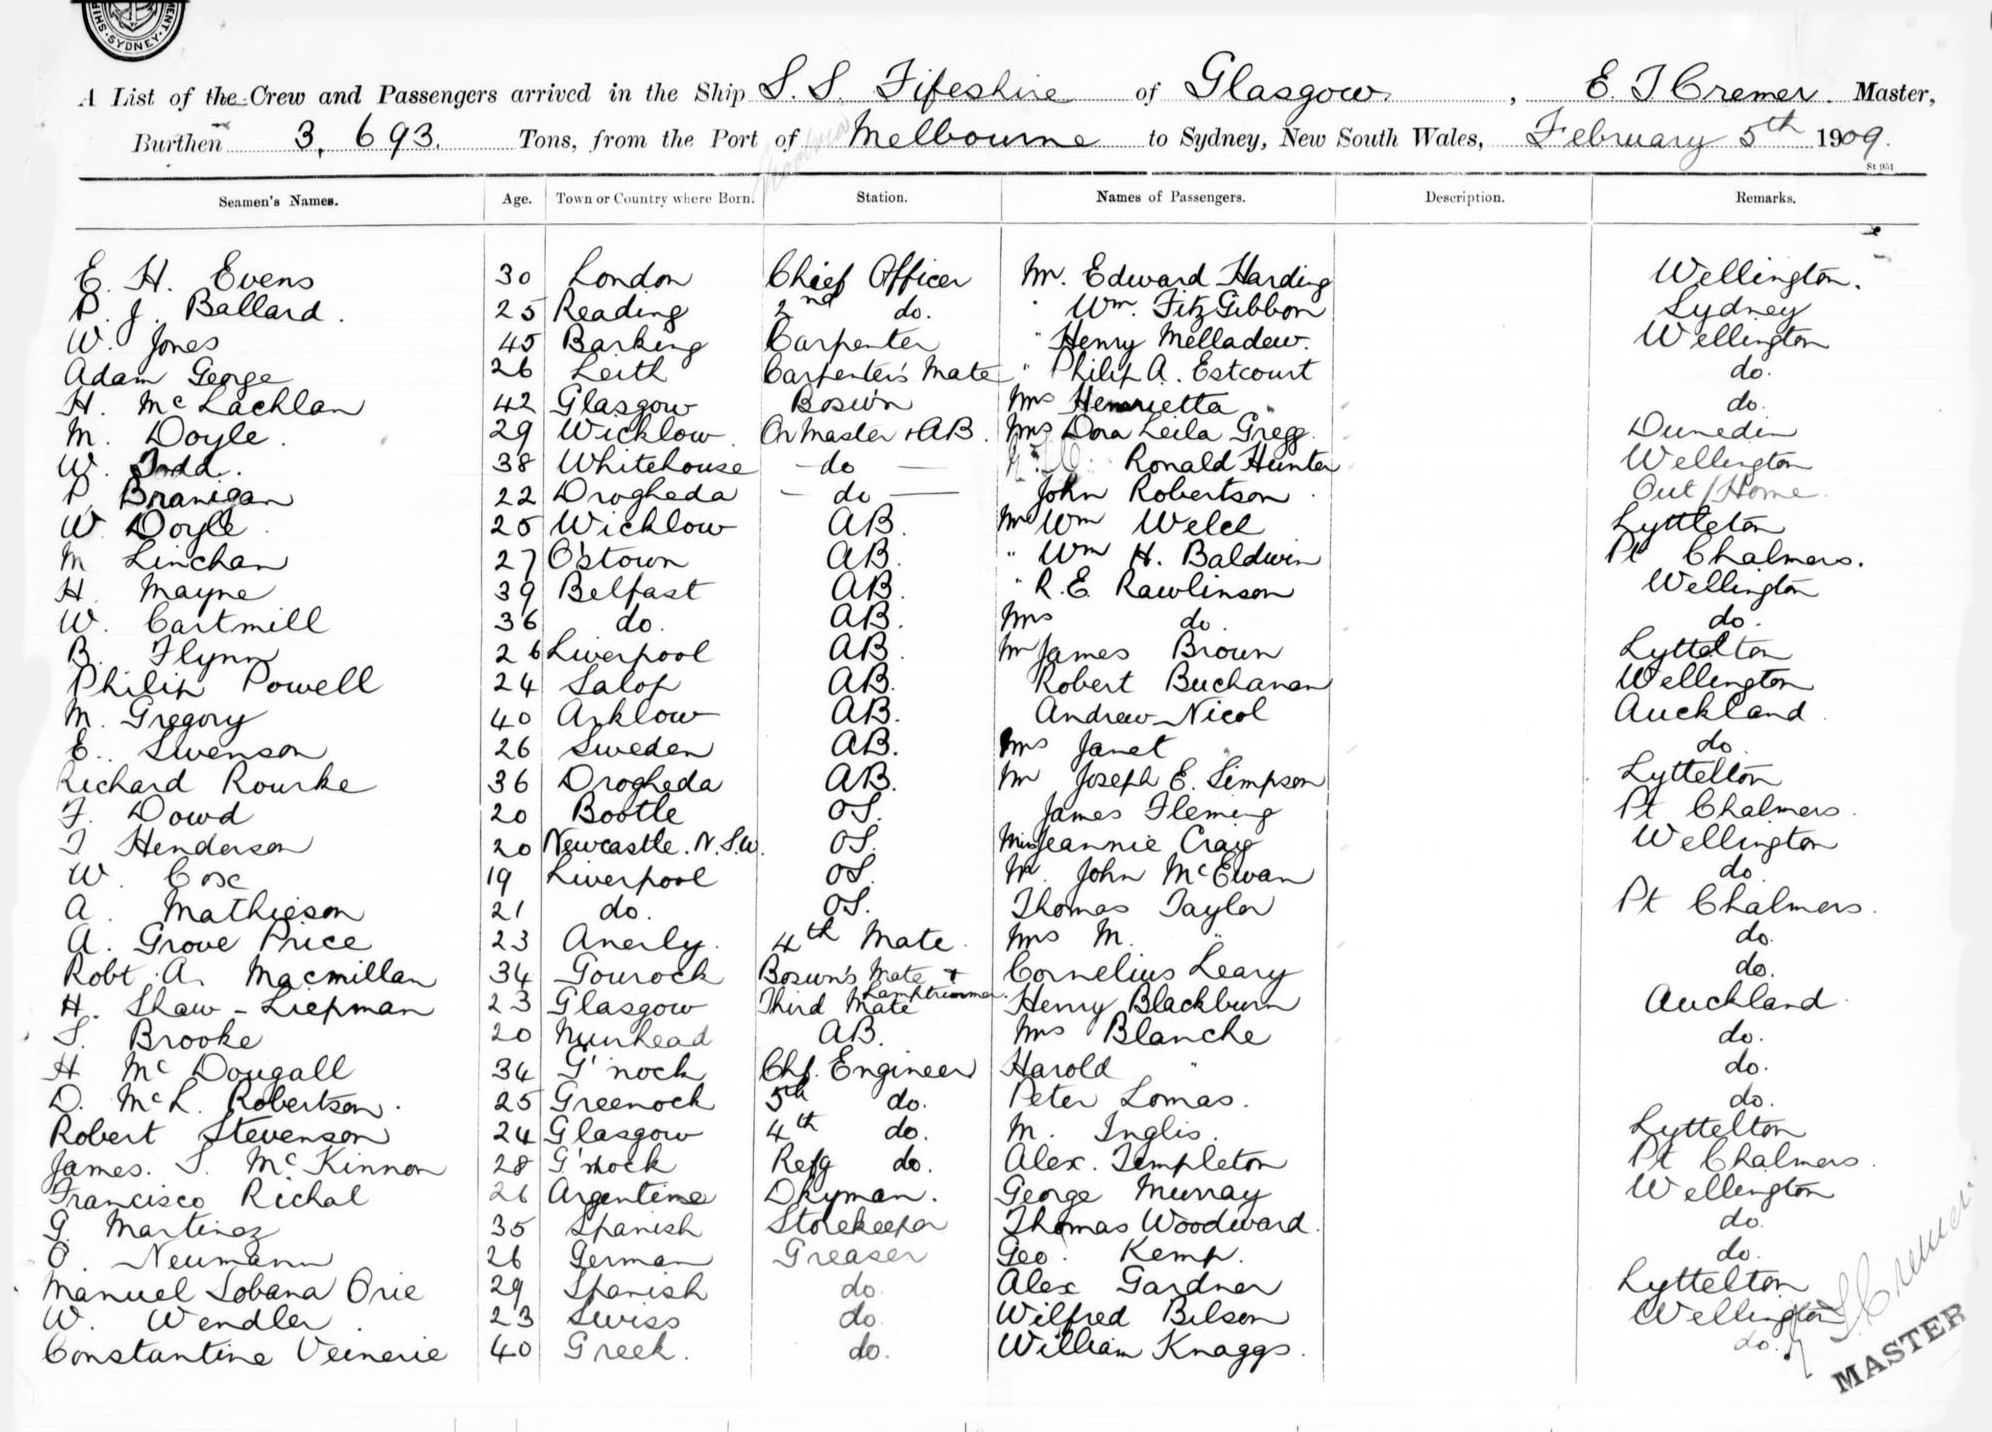 SYDNEY
A List of the Crew and Passengers arrived in the Ship S. S. Fifeshire of Glasgow, E. T Cremer. Master,
Burthen 3,693. Tons, from the Port of Melbourne to Sydney, New South Wales, February 5th 1909.
St 951
Seamen's Names. Age. Town or Country where Born. Station. Names of Passengers. Description. Remarks.
E. H. Evens 30 London Chief Officer Mr. Edward Harding Wellington.
P. J. Ballard. 25 Reading 2nd do. " Wm. FitzGibbon Sydney
W. Jones 45 Barking Carpenter " Henry Melladew. Wellington
Adam George 26 Leith Carpenter's Mate " Philip A. Estcourt do.
H. McLachlan 42 Glasgow Bos'n Mrs Henrietta " do.
M. Doyle. 29 Wicklow. Qr Master & AB. Mrs Dora Leila Gregg. Dunedin
W. Todd. 38 Whitehouse - do - Ronald Hunter Wellington
P. Branigan 22 Drogheda - do - John Robertson. Out/Home.
W. Doyle. 25 Wicklow AB. Mr Wm Welch Lyttleton
M Linehan 27 Q'stown AB. " Wm H. Baldwin Pt Chalmers.
H. Mayne 39 Belfast AB. " R. E. Rawlinson Wellington
W. Cartmill 36 do. AB. Mrs do. do.
B. Flynn 26 Liverpool AB. Mr James Brown Lyttelton
Philip Powell 24 Salop AB. Robert Buchanan Wellington
M. Gregory 40 Arklow AB. Andrew Nicol Auckland.
E. Swenson 26 Sweden AB. Mrs Janet " do.
Richard Rourke 36 Drogheda AB. Mr Joseph E. Simpson Lyttelton
F. Dowd 20 Bootle OS. James Fleming Pt Chalmers.
T Henderson 20 Newcastle. N.S.W. OS. Miss Jeannie Craig Wellington
W. Cox 19 Liverpool OS. Mr. John McEwan do.
A. Mathieson 21 do. OS. Thomas Taylor Pt Chalmers.
A. Grove Price 23 Anerly. 4th Mate. Mrs M. " do.
Robt. A. Macmillan 34 Gourock Bosun's Mate & Lamptrimmer. Cornelius Leary do.
H. Shaw-Liepman 23 Glasgow Third Mate Henry Blackburn Auckland.
S. Brooke 20 Muirhead AB. Mrs Blanche " do.
H McDougall 34 G'nock Chf. Engineer Harold " do.
D. McL. Robertson. 25 Greenock 5th do. Peter Lomas. do.
Robert Stevenson 24 Glasgow 4th do. M. Inglis. Lyttelton
James. S. McKinnon 28 G'nock Refg do. Alex. Templeton Pt Chalmers.
Francisco Richal 26 Argentine Dkyman. George Murray Wellington
G. Martinez 35 Spanish Storekeeper Thomas Woodward. do.
O. Neumann 26 German Greaser Geo. Kemp. do.
Manuel Lobana Orie 29 Spanish do. Alex Gardner Lyttelton
W. Wendler. 23 Swiss do. Wilfred Bilson Wellington
Constantine Veinerie 40 Greek. do. William Knaggs. do.
E T Cremer.
MASTER